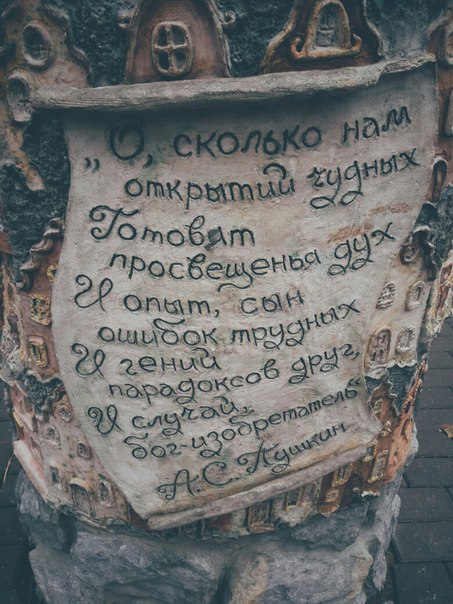 „О, сколько нам
открытий чудных
Готовят
просвещенья дух
И опыт, сын
ошибок трудных
И гений
парадоксов друг,
И случай,
бог-изобретатель“
А.С.Пушкин